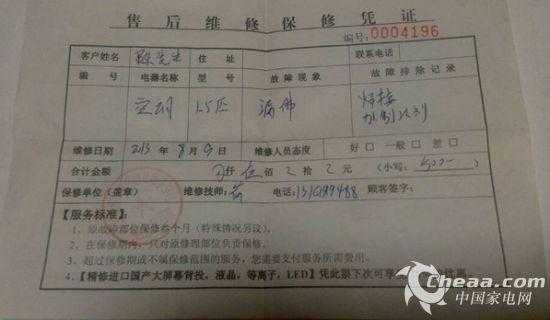 售后维修保修凭证
编号:0004196
客户姓名 陈先生 住址 联系电话
编号 电器名称 型号 故障现象 故障排除记录
空调 1.5匹 漏佛 焊接
加制冷剂
维修日期 2013 8月9日 维修人员态度 好口 一般口 差口
合计金额 仟 伍佰 拾 元 (小写:
保修单位(盖章) 维修技师: 电话: 顾客签字:
【服务标准】:
1、原故障部位保修叁个月(特殊情况另议)。
2、在保修期内,只对原修理部位负责保修。
3、超过保修期或不属保修范围的服务,您需要支付服务所需费用。
4.【精修进口国产大屏幕背投,液晶,等离子,LED】凭此票下次可享
Cheaa.com
中国家电网